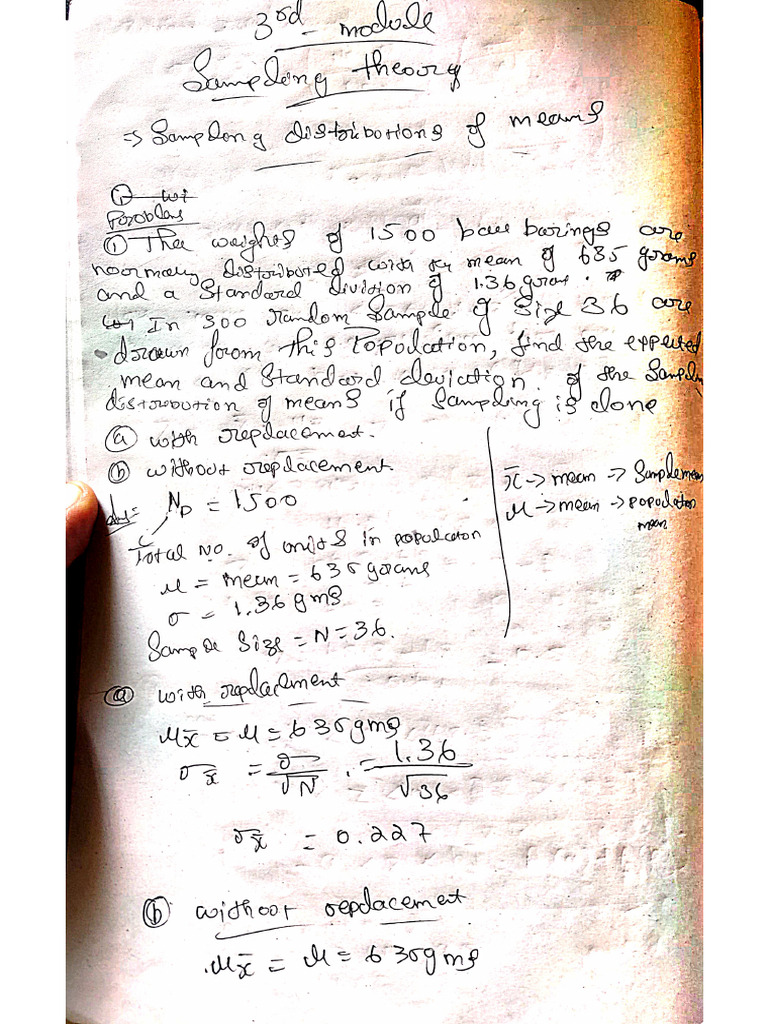 3rd module
Sampling theory
⇒ Sampling distributions of means
① wi
Problems
① The weights of 1500 ball barings are
normally distributed with mean of 635 grams
and a standard division of 1.36 gram.
In 300 random sample of size 36 are
drawn from this Population, find the expected
mean and standard deviation of the Sampling
distribution of means if sampling is done
ⓐ with replacement.
ⓑ without replacement
x̄ → mean → Sample mean
μ → mean → population
mean
Np = 1500
Total no. of units in population
μ = mean = 635 grams
σ = 1.36 gms
Sample Size = N = 36.
ⓐ with replacement
μx̄ = μ = 635 gms
σx̄ = σ/√N = 1.36/√36
σx̄ = 0.227
ⓑ without replacement
μx̄ = μ = 635 gms